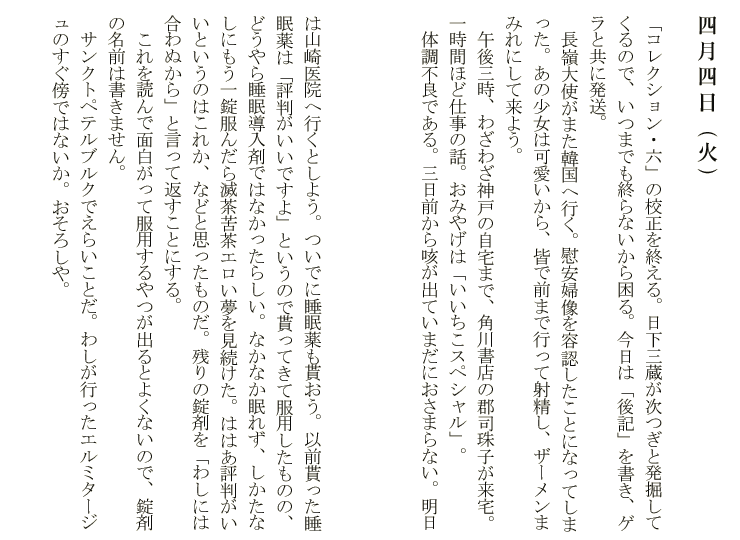 四月四日（火）
「コレクション・六」の校正を終える。日下三蔵が次つぎと発掘して
くるので、いつまでも終らないから困る。今日は「後記」を書き、ゲ
ラと共に発送。
　長嶺大使がまた韓国へ行く。慰安婦像を容認したことになってしま
った。あの少女は可愛いから、皆で前まで行って射精し、ザーメンま
みれにして来よう。
　午後三時、わざわざ神戸の自宅まで、角川書店の郡司珠子が来宅。
一時間ほど仕事の話。おみやげは「いいちこスペシャル」。
　体調不良である。三日前から咳が出ていまだにおさまらない。明日
は山崎医院へ行くとしよう。ついでに睡眠薬も貰おう。以前貰った睡
眠薬は「評判がいいですよ」というので貰ってきて服用したものの、
どうやら睡眠導入剤ではなかったらしい。なかなか眠れず、しかたな
しにもう一錠服んだら滅茶苦茶エロい夢を見続けた。ははあ評判がい
いというのはこれか、などと思ったものだ。残りの錠剤を「わしには
合わぬから」と言って返すことにする。
　これを読んで面白がって服用するやつが出るとよくないので、錠剤
の名前は書きません。
　サンクトペテルブルクでえらいことだ。わしが行ったエルミタージ
ュのすぐ傍ではないか。おそろしや。